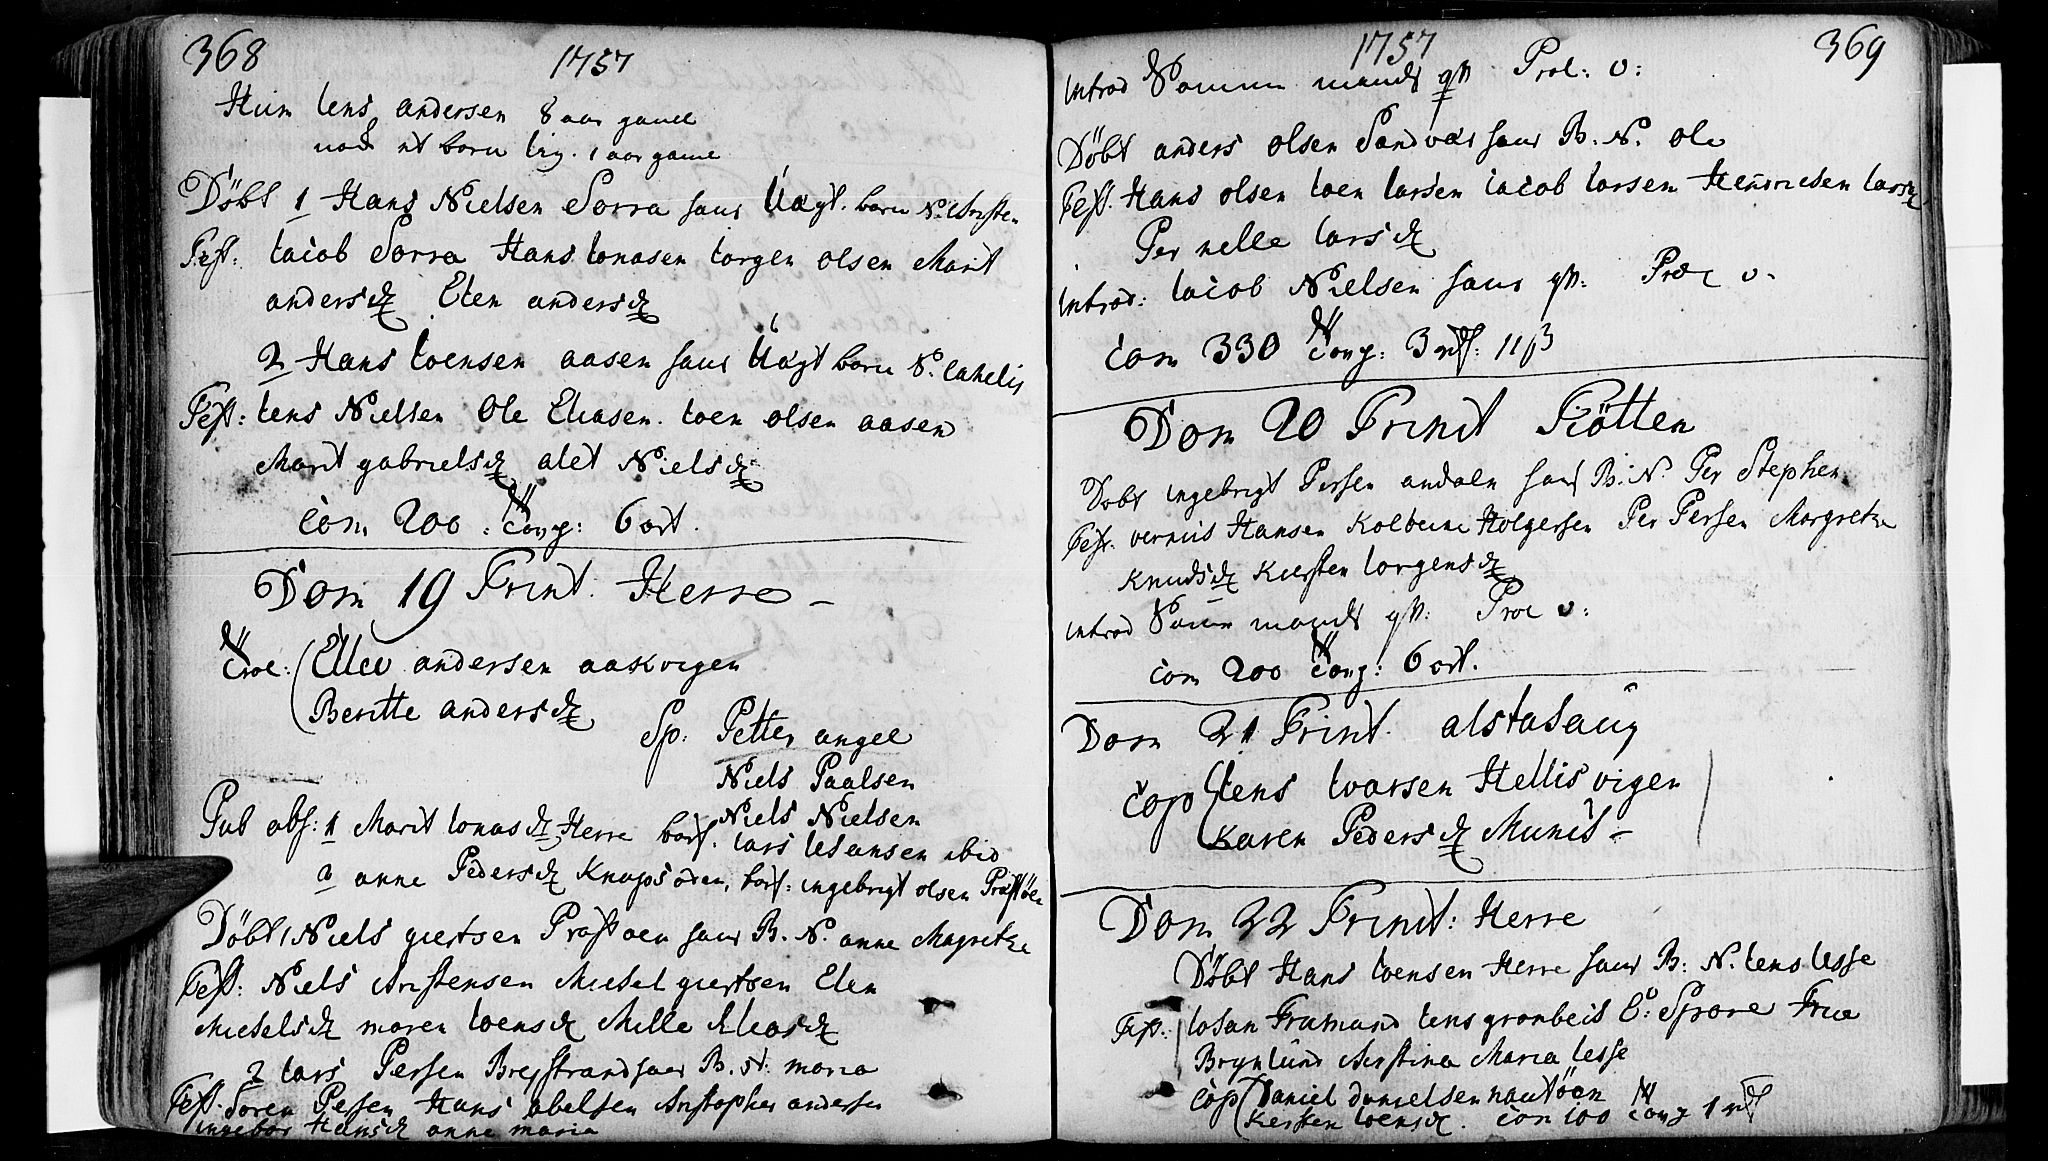 368
1757
Hiim Iens andersen 8 aar gamel
nock et barn lig. 1 aar gamel
Döbt 1 Hans Nielsen Sorra havs Uägt. barn N.
Test: Iacob Sorra Hans Ionasen Iörgen olsen Marit
andersdr Elen andersdr
2 Hans Ioensen aasen havs Uägt barn N.
Test: Iens Nielsen Ole Eliasen. Ioen olsen aasen
Marit gabrielsdr alet Nielsdr
Com 200: Cong: 6 ort.
Dom 19 Trinit. Herre
Troe: Ellev andersen aaskvigen
Beritte andersdr
Sp: Petter angel
Niels Paalsen
Pub abs: 1 Marit Ionasdr Herre bes. Niels Nielsen
Lars ibid
2 anne Pedersdr Knapsöen, bes: ingebrigt olsen Præstöen
Döbt 1 Niels giertsen Præstöen havs B. N. anne Magrethe
Test: Niels Cristensen Mickel giertsen Elen
Mickelsdr maren Ioensdr Mille Eliasdr
2 Lars Persen Breystrand havs B. N: maria
Test. Sören Persen Hans abelsen Cristopher andersen
ingebor Hansdr anne maria
1757
369
introd mands qv Præl: v:
Döbt anders olsen Sandvær havs B. N. Ole
Test. Hans olsen Ioen Larsen Iacob Larsen Hendricsen Larsdr
Per nelle Larsdr
introd: Iacob Nielsen havs qv: Præl v.
Com 330 Cong: 3 rdl: 11 ß
Dom 20 Trinit Tiötten
Döbt ingebrigt Persen andaln havs B: N. Per Stephen
Test. Hansen Kolbeine Holgersen Per Persen Margrethe
Knudsdr Kiersten Iörgensdr
introd mands qv: Præl v:
Com 200 Cong: 6 ort.
Dom 21 Trinit. alstahaug
Cop Iens Ivarsen Hellisvigen
Karen Pedersdr
Dom 22 Trinit: Herre
Döbt Hans Ioensen Herre havs B: N. Iens Iesse
Test. Iohan Framand Iens grønbeck Frue
Brynlund Cierstina Maria Iesse
Cop Daniel Danielsen havtöen
Kersten Ioensdr. Com 100 Cong 1 rdl